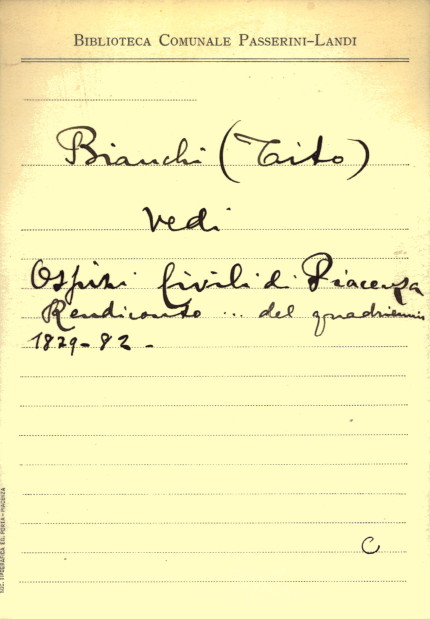 BIBLIOTECA COMUNALE PASSERINI-LANDI
Bianchi (Tito)
vedi
Ospizi Civili di Piacenza
Rendiconto ... del quadriennio
1879-82-
C
SOC. TIPOGRAFICA ED. PORTA-PIACENZA